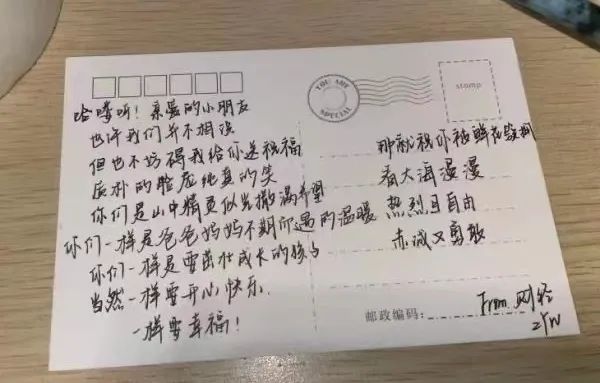 哈喽呀！亲爱的小朋友
也许我们并不相识
但也不妨碍我给你送祝福
质朴的脸庞纯真的笑
你们是山中精灵似光撒满希望
你们一样是爸爸妈妈不期而遇的温暖
你们一样是要茁壮成长的孩子
当然一样要开心快乐.
一样要幸福！
YOU ARE
SPECIAL
stamp
那就祝你被鲜花簇拥
看大海漫漫
热烈且自由
赤诚又勇敢
邮政编码：
From 财经